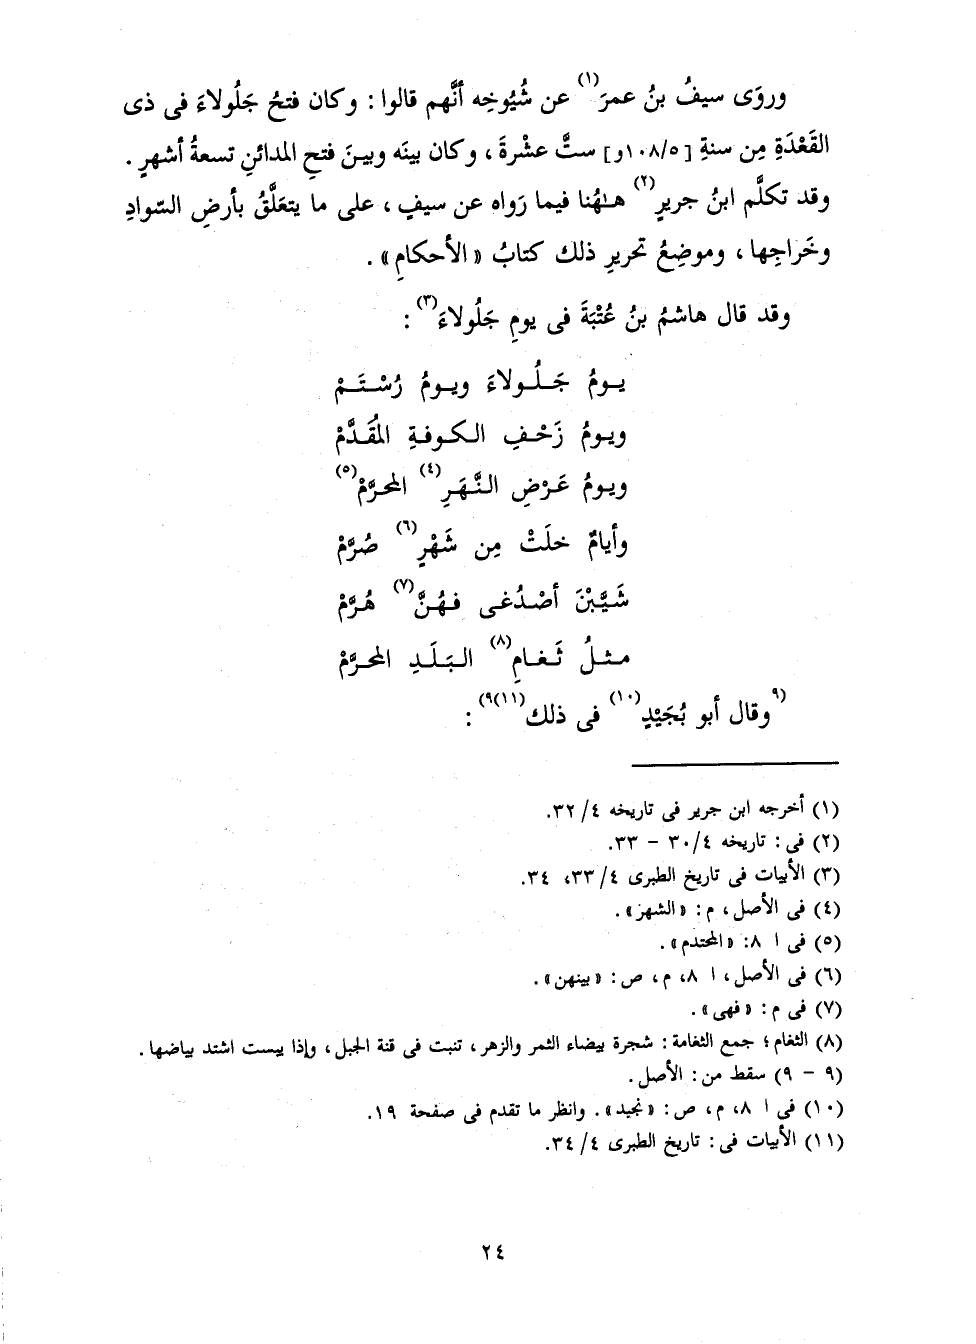 وروَى سيفُ بنُ عمرَ(١) عن شُيُوخِه أنَّهم قالوا : وكان فتحُ جَلُولاءَ فى ذى
القَعْدَةِ مِن سنةِ [١٠٨/٥و] ستَّ عشْرةَ ، وكان بينَه وبينَ فتحِ المدائنِ تسعةُ أشهرٍ .
وقد تكلَّم ابنُ جريرٍ(٢) هـٰهُنا فيما رَواه عن سيفٍ ، على ما يتعَلَّقُ بأرضِ السَّوادِ
وخَراجِها ، وموضِعُ تحريرِ ذلك كتابُ « الأحكامِ » .
وقد قال هاشمُ بنُ عُتْبَةَ فى يومِ جَلُولاءَ(٣) :
يـومُ جَـلُـولاءَ ويـومُ رُسْـتَـمْ
ويـومُ زَحْـفِ الـكـوفـةِ المُقَـدَّمْ
ويـومُ عَـرْضِ الـنَّـهَـرِ(٤) المحـرَّمْ(٥)
وأيامٌ خلَتْ مِن شَهْرٍ(٦) صُرَّمْ
شَيَّبْنَ أصْدُغى فـهُنَّ(٧) هُـرَّمْ
مـثـلُ ثَـغـامِ(٨) الـبَـلَـدِ المحـرَّمْ
(٩ وقال أبو بُجَيْدٍ(١٠) فى ذلك(١١)٩) :
(١) أخرجه ابن جرير فى تاريخه ٣٢/٤.
(٢) فى : تاريخه ٣٠/٤ - ٣٣.
(٣) الأبيات فى تاريخ الطبرى ٣٣/٤، ٣٤.
(٤) فى الأصل ، م : « الشهر » .
(٥) فى ا ٨: « المحتدم » .
(٦) فى الأصل ، ا ٨، م ، ص : « بينهن » .
(٧) فى م : « فهى » .
(٨) الثغام ؛ جمع الثغامة : شجرة بيضاء الثمر والزهر ، تنبت فى قنة الجبل ، وإذا يبست اشتد بياضها .
(٩ - ٩) سقط من : الأصل .
(١٠) فى ا ٨، م ، ص : « نجيد » . وانظر ما تقدم فى صفحة ١٩.
(١١) الأبيات فى : تاريخ الطبرى ٣٤/٤.
٢٤